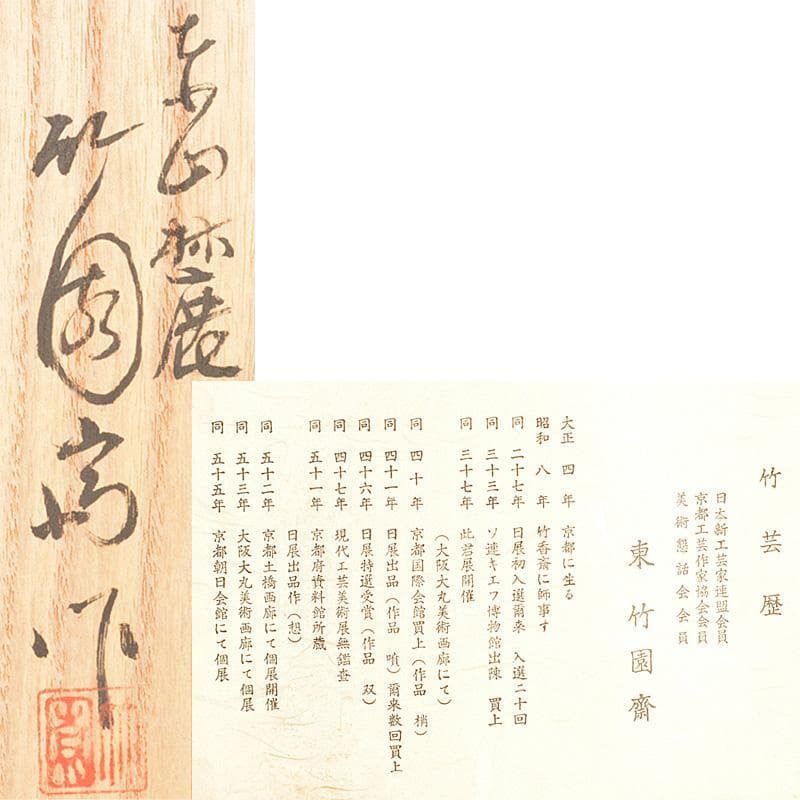 東山麓
竹園斎 作
竹芸歴
日本新工芸家連盟会員
京都工芸作家協会会員
美術懇話会会員
東竹園齋
大正 四 年 京都に生る
昭和 八 年 竹香斎に師事す
同 二十七年 日展初入選爾来 入選二十回
同 三十三年 ソ連キエフ博物館出陳 買上
同 三十七年 此君展開催
(大阪大丸美術画廊にて)
同 四 十 年 京都国際会館買上(作品 梢)
同 四十一年 日展出品(作品 噴)爾来数回買上
同 四十六年 日展特選受賞(作品 双)
同 四十七年 現代工芸美術展無鑑査
同 五十一年 京都府資料館所蔵
日展出品作(想)
同 五十二年 京都土橋画廊にて個展開催
同 五十三年 大阪大丸美術画廊にて個展
同 五十五年 京都朝日会館にて個展